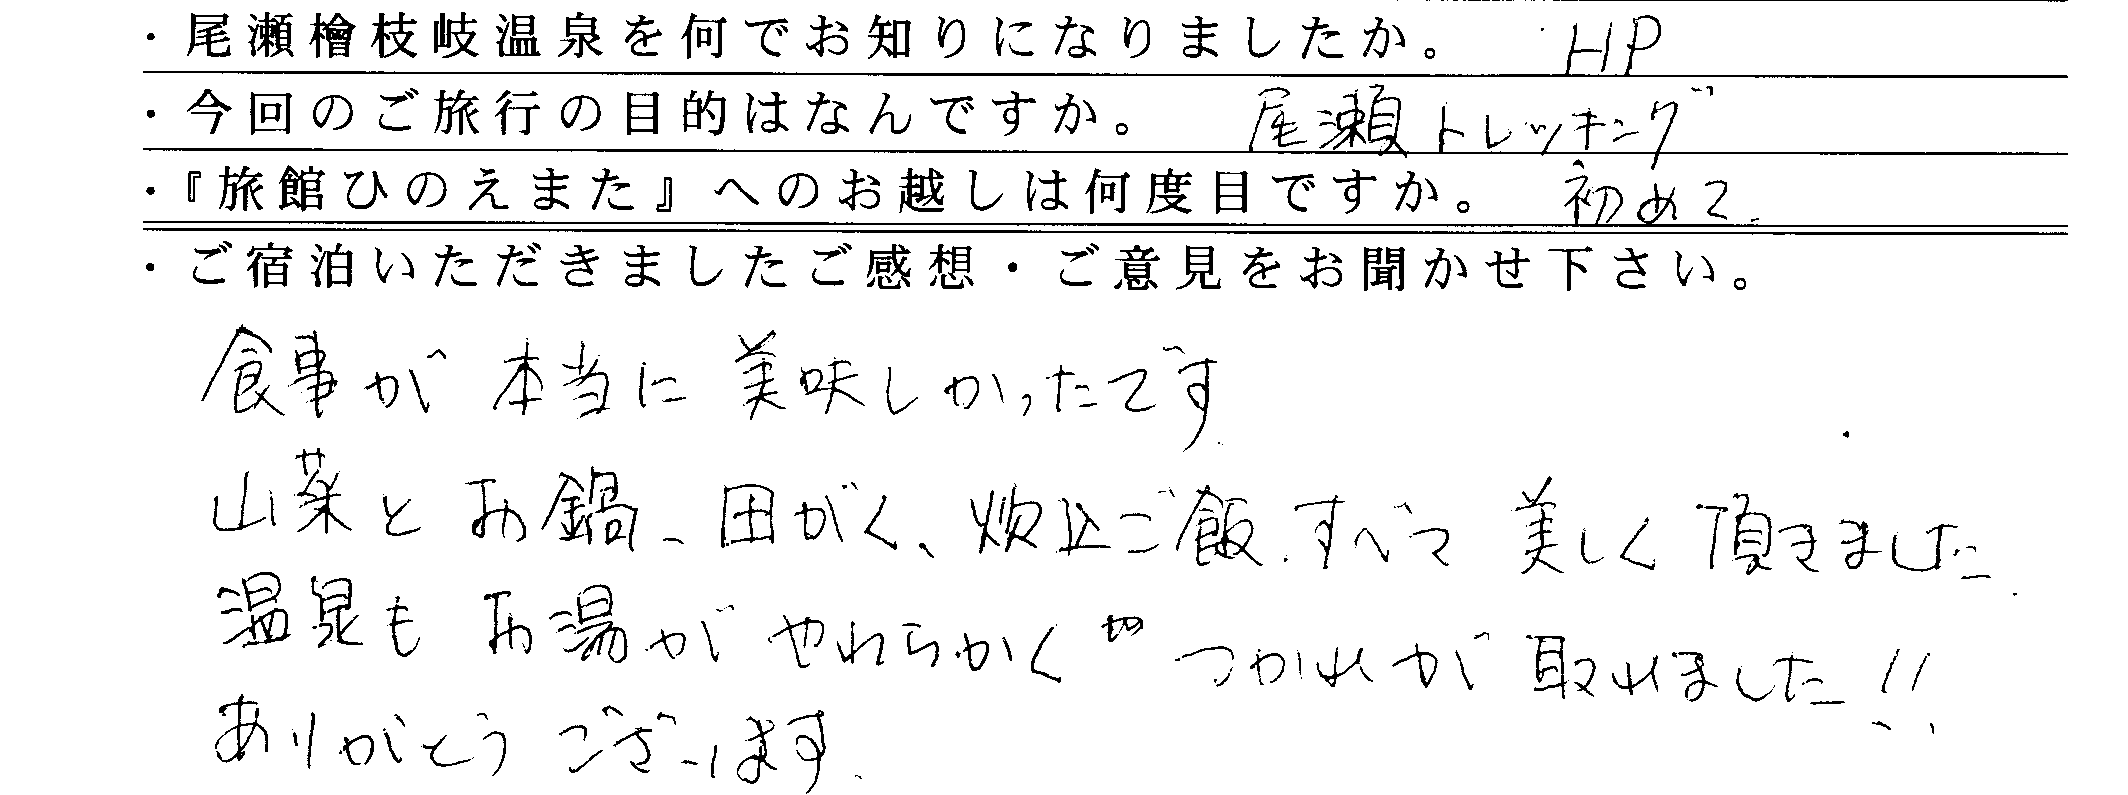 ・尾瀬檜枝岐温泉を何でお知りになりましたか。 HP
・今回のご旅行の目的はなんですか。 尾瀬トレッキング
・『旅館ひのえまた』へのお越しは何度目ですか。 初めて.
・ご宿泊いただきましたご感想・ご意見をお聞かせ下さい。
食事が本当に美味しかったです.
山菜とお鍋、田がく、炊込ご飯.すべて美しく頂きました.
温泉もお湯がやわらかく つかれが取れました!!
ありがとうございます.